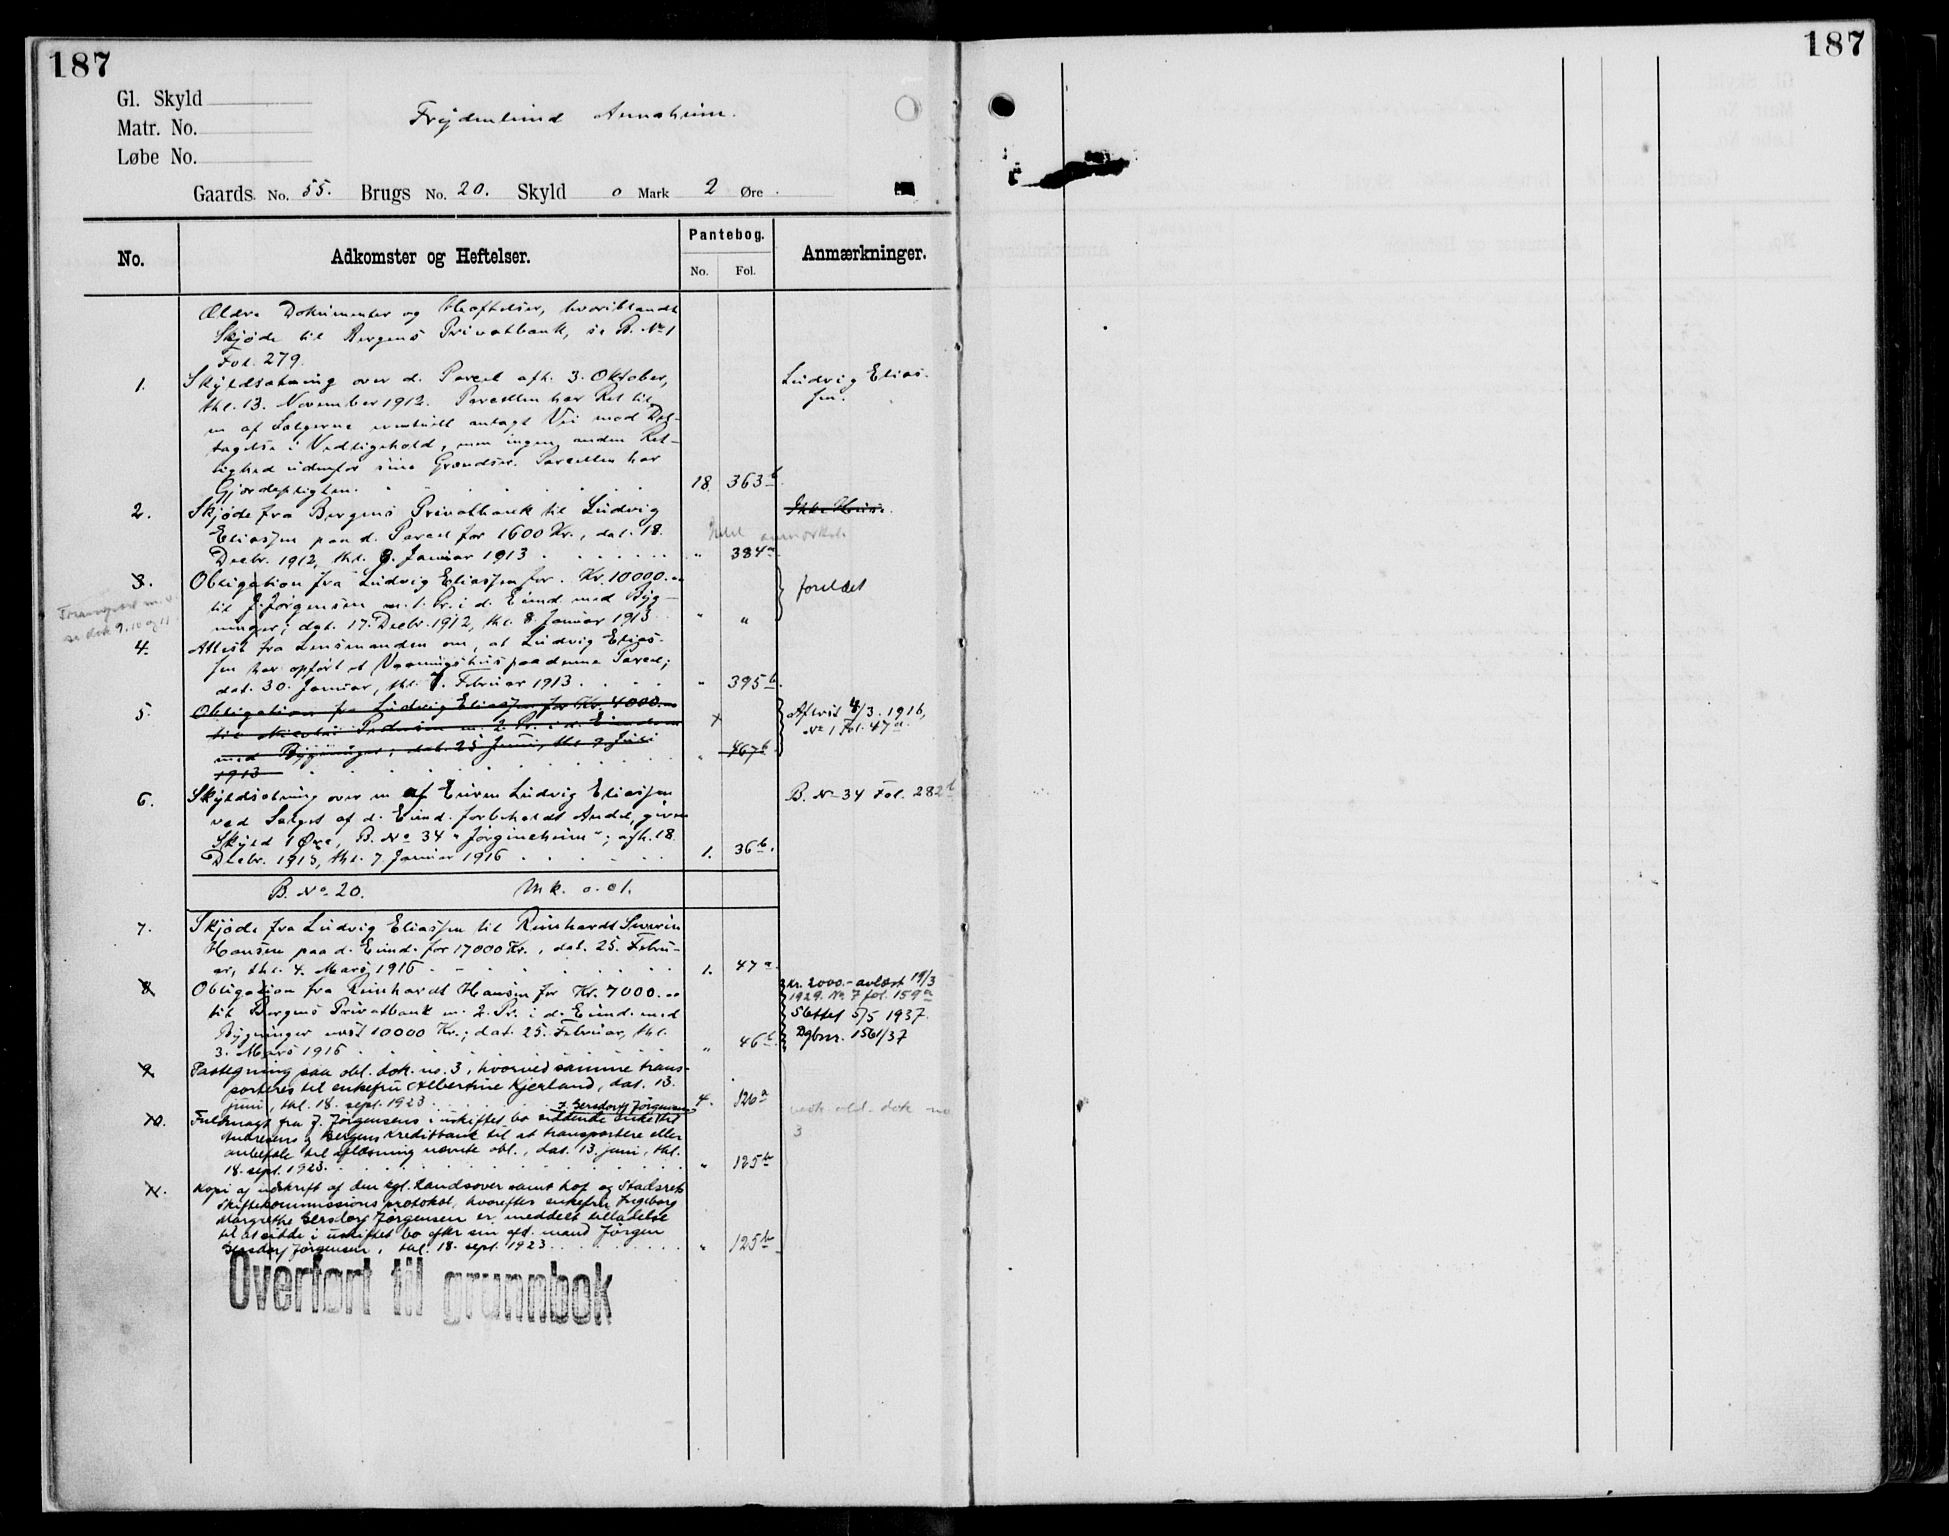 187
187
Gl. Skyld
Matr. No.
Løbe No.
Frydenlund Annaheim.
Gaards. No. 55. Brugs No. 20. Skyld 0 Mark 2 Øre
No.
Adkomster og Heftelser.
Pantebog.
No. Fol.
Anmærkninger.
Ældre Dokumenter og Heftelser, hvoriblandt
Skjøde til Bergens Privatbank, se B. No 1
Fol. 279.
1. Skyldsætning over d. Parcel afh. 3. Oktober, Ludvig Elias-
thl. 13. November 1912. Parcellen har Ret til sen.
en af Sælgerne eventuelt anlagt Vei mod Del-
tagelse i Vedligehold, men ingen anden Ret-
tighed udenfor sine Grændser. Parcellen har
Gjerdepligten. 18. 363 b
2. Skjøde fra Bergens Privatbank til Ludvig Ikke Huse.
Eliassen paa d. Parcel for 1600 Kr., dat. 18.
Decbr. 1912, thl. 8. Januar 1913 " 384 a
3. Obligation fra Ludvig Eliassen for Kr. 10000.00
til J. Jørgensen m. 1. Pr. i d. Eiend. med Byg- foreldet
ninger; dat. 17. Decbr. 1912, thl. 8. Januar 1913 " "
se dok 9, 10 og 11
4. Attest fra Lensmanden om, at Ludvig Elias-
sen har opført et Vaaningshus paa denne Parcel;
dat. 30. Januar, thl. 7. Februar 1913. " 395 b.
5. Obligation fra Ludvig Eliassen for Kr. 4000.00 Aflæst 4/3. 1916,
til Nicolai Pedersen m. 2. Pr. i d. Eiendom No 1 Fol. 47 a.
med Bygninger; dat. 25 Juni, thl. 9 Juli " 467 b
1913
6. Skyldsætning over en af Eieren Ludvig Eliassen B. No 34 Fol. 282 b
ved Salget af d. Eiend. forbeholdt Andel, given
Skyld 1 Øre, B. No 34 "Jørgineheim"; afh. 18.
Decbr. 1915, thl. 7 Januar 1916 1. 36 b.
B. No 20. Mk. 0.01.
7. Skjøde fra Ludvig Eliassen til Reinhardt Severin
Hansen paa d. Eiend. for 17000 Kr., dat. 25. Febru-
ar, thl. 4. Mars 1916 1. 47 a.
8. Obligation fra Reinhardt Hansen for Kr. 7000.00 kr. 2000.- avlæst 19/3
til Bergens Privatbank m. 2. Pr. i d. Eiend. med 1929. No. 7 fol. 159 a
Bygninger næst 10000 Kr.; dat. 25. Februar, thl. Slettet 5/5 1937.
3. Mars 1916 " 46 b. Dgbnr. 1561/37
9. Paategning paa obl. dok. no. 3, hvorved samme trans-
porteres til enkefru Albertine Kjerland, dat. 13.
juni, thl. 18. sept. 1923 4. 126 a
J. Gersdorff Jørgensens
10. Fuldmagt fra J. Jørgensens i uskiftet bo siddende enke til
Andresens & Bergens Kreditbank til at transportere eller 3
anbefale til aflæsning nævnte obl., dat. 13. juni, thl.
18. sept. 1923. " 125 b
11. Kopi af udskrift af den kgl. Landsover samt hof og Stadsrets
Skiftekommissions protokol, hvorefter enkefru Ingeborg
Margrethe Gersdorf Jørgensen er meddelt tilladelse
til at sidde i uskiftet bo efter sin afd. mand Jørgen
Gersdorf Jørgensen, thl. 18. sept. 1923 " 125 b
Overført til grunnbok